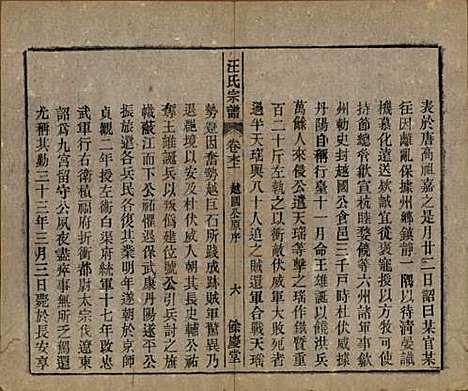 表於唐高祖嘉之是月廿二日詔曰某官某
往因離亂保據州鄉鎮靜一隅以待清晏識
機慕化遠送款誠宜從褒寵授以方牧可使
持節總管歙宣杭睦婺饒等六州諸軍事歙
州刺史封越國公食邑三千戶時輔公祏反
丹陽自稱行臺十一月命王雄誕以洪兵
萬餘人來侵公遣天瑤等之瑤作鐵鬢重
百二十斤左執之以衝敵伏威大敗死亡
過半天瑤與八十人追之賊還軍合戰天瑤
勢迫因奮勢越巨石所踐成跡賊軍驚異乃
罷兵以安及杜伏威入朝其長史輔公祏
奪王雄誕兵以叛偽建位號公引兵討之旗
幟蔽江而下公祏懼退保武康丹陽遂平公
振旅還各兵民各復其業明年遂朝於京師
貞觀二年授左衛白渠府統軍十七年改忠
武軍行右衛積福府折衝都尉太宗伐遼東
詔爲九宮留守公夙夜盡瘁事無所乏駕還
尤稱其勤二十三年三月三日薨於長安享
汪氏宗譜
卷之
越國公原序
六
餘慶堂